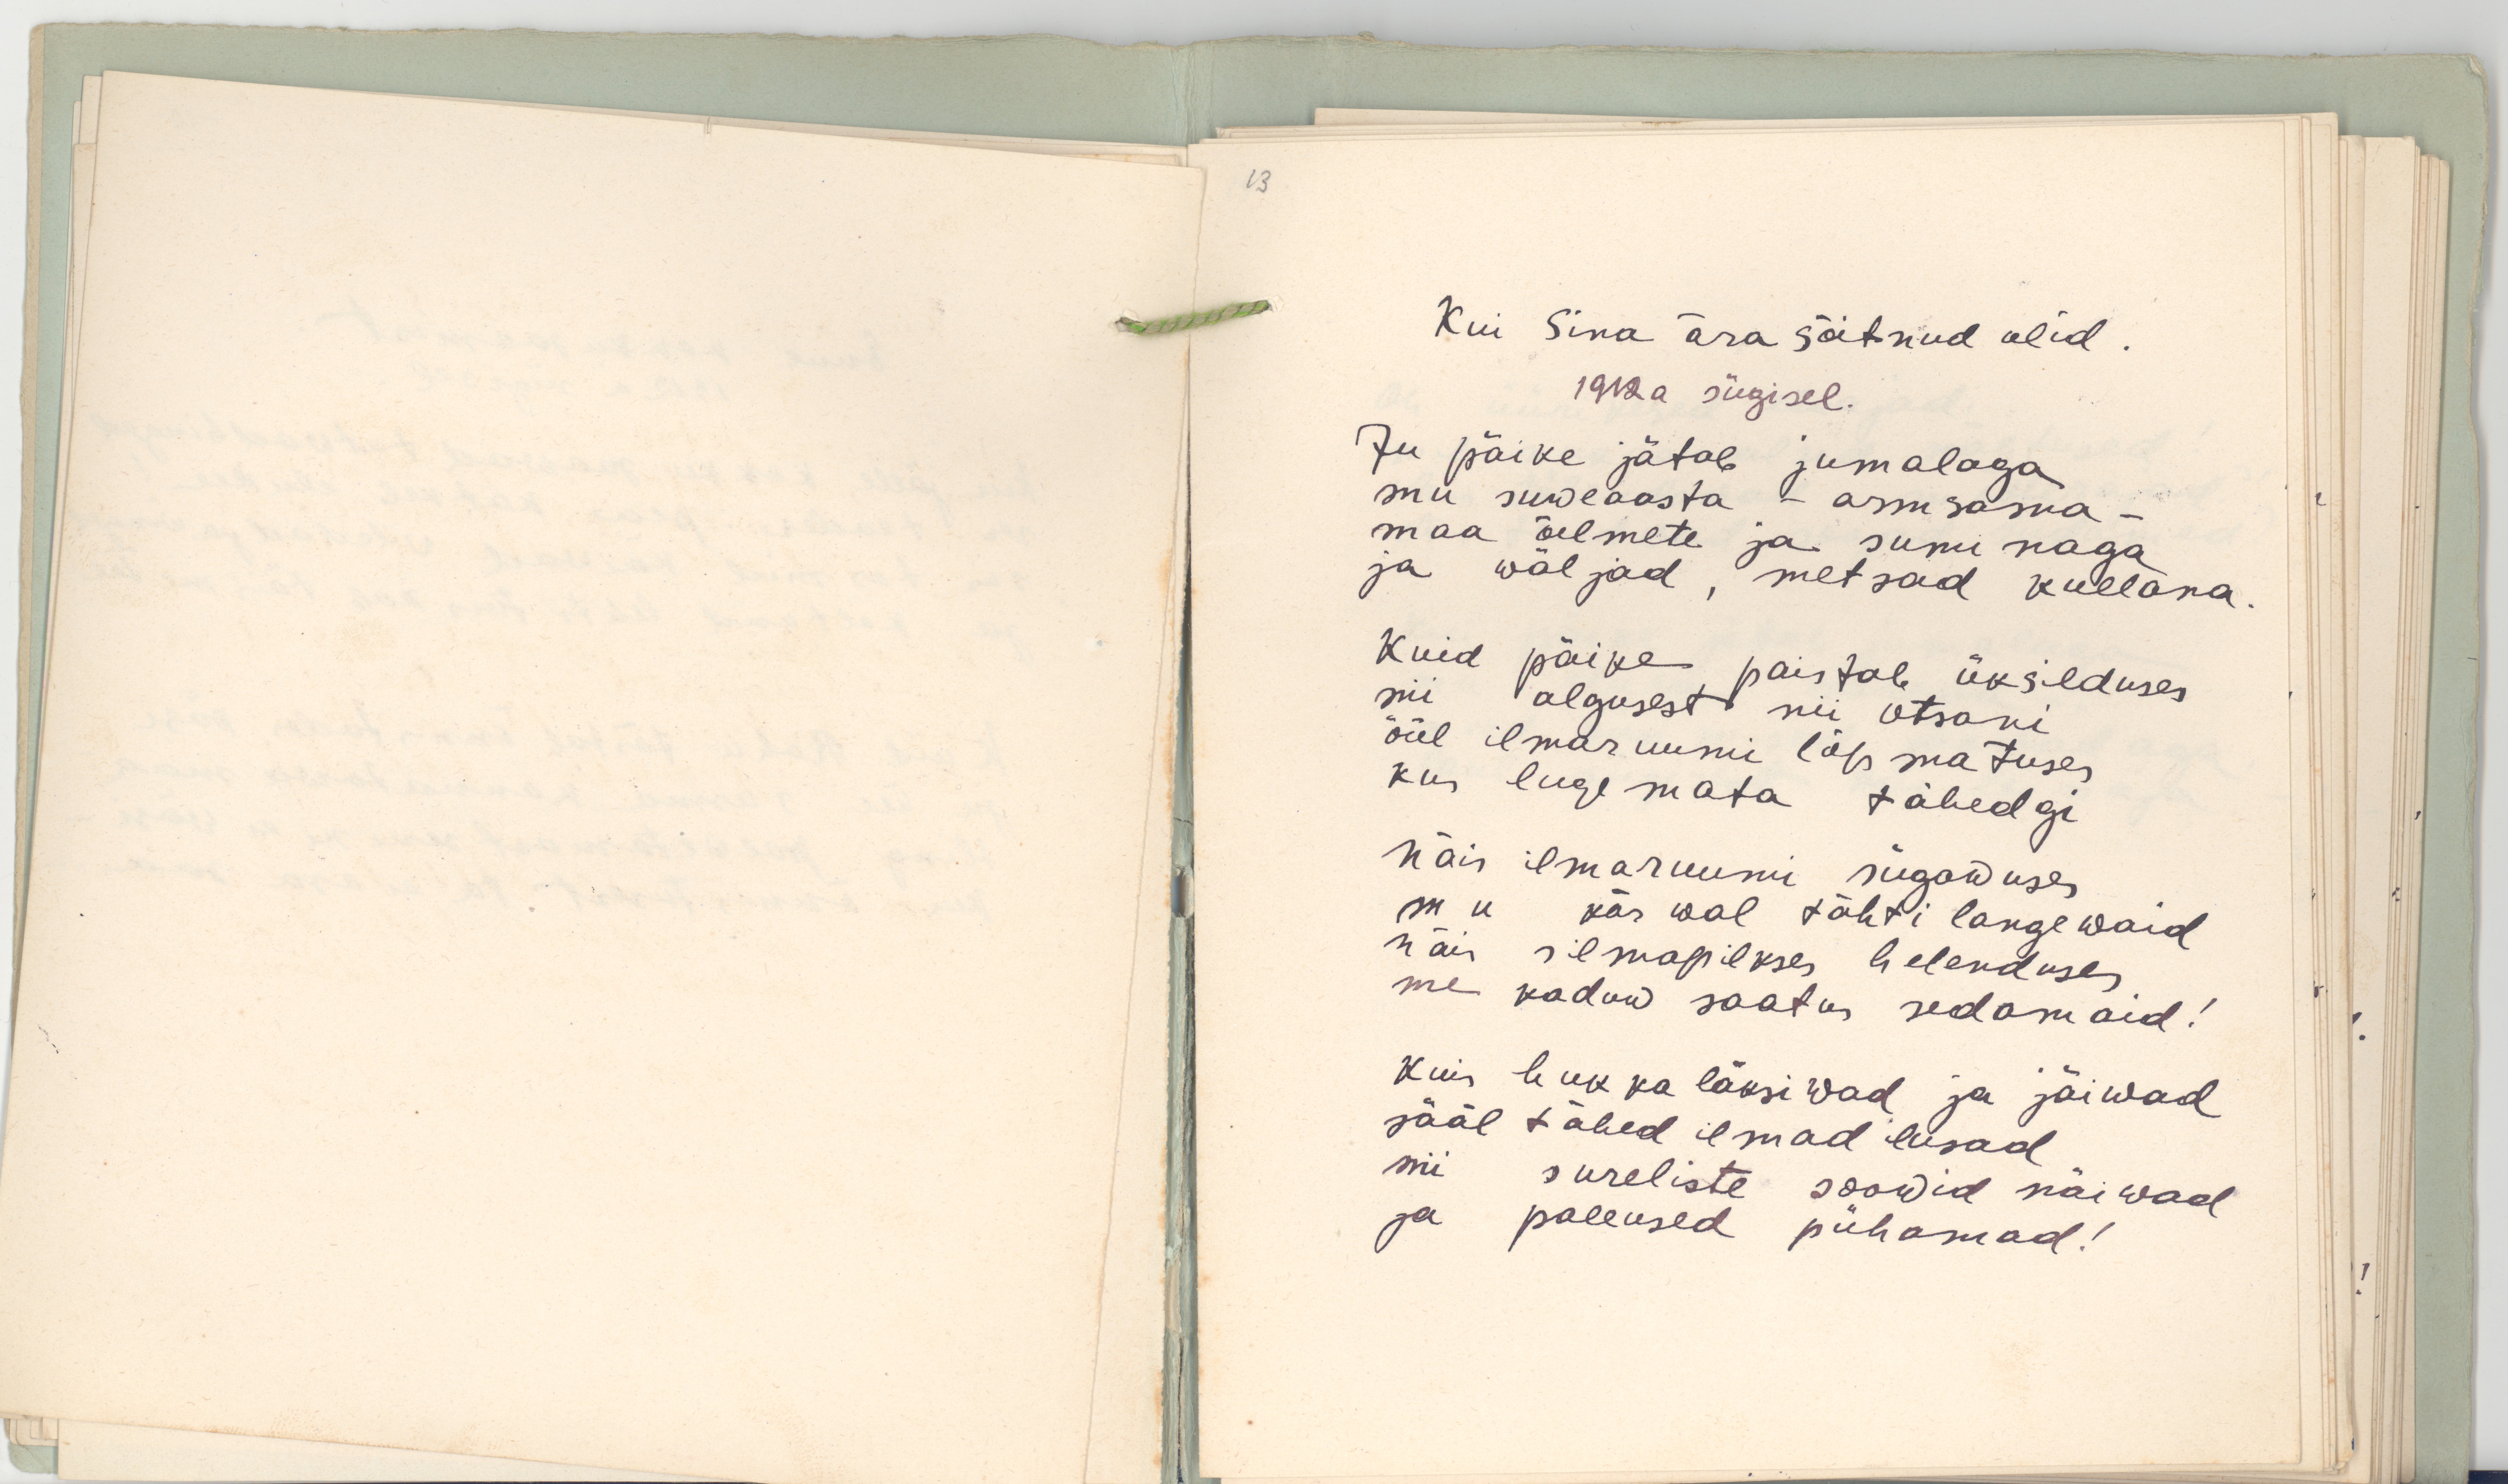 13
Kui Sina ära sõitnud olid.
1912 a sügisel.
Ju päike jätab jumalaga
mu suweaasta – armsama –
maa õilmete ja sumi naga
ja wäljad, metsad kullana.
Kuid päike paistab üksilduses
nii algusest nii otsani
ööl ilmaruumi lõpmatuses
kus lugemata tähedgi
Näis ilmaruumi sügawuses
mu käs wal tähti langewaid
näis silmapilkses helenduses
me kaduw saatus sedamaid!
Kuis hukka läksiwad ja jäiwad
sääl tähed ilmad ilusad
nii sureliste soowid näiwad
ja palwused pühamad!